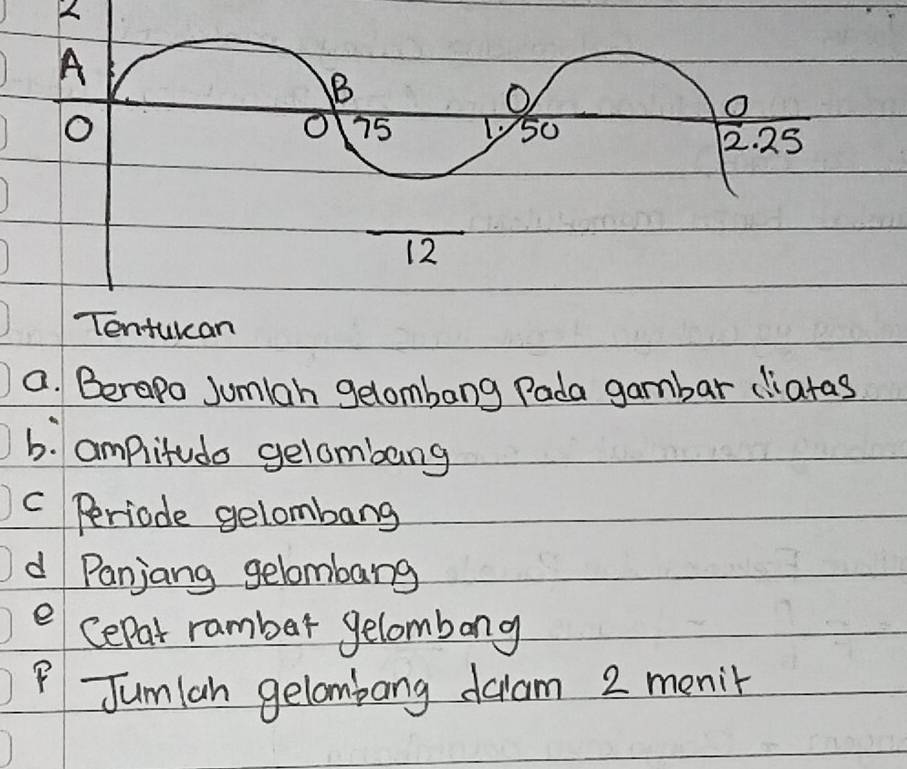 2
A
B
O
O
O
O 75
1.50
2.25
12
Tentukan
a. Berapa Jumlah gelombang Pada gambar diatas
b. amplitudo gelombang
c Periode gelombang
d Panjang gelombang
e Cepat rambat gelombang
f Jumlah gelombang dalam 2 menit